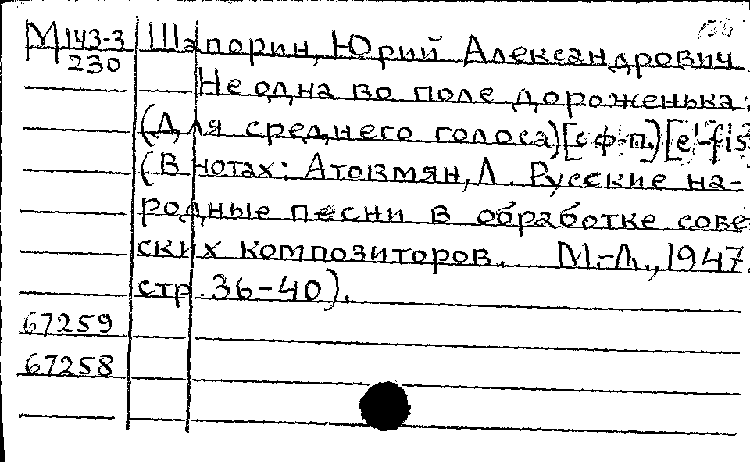 М 143-3 Шапорин, Юрий Александрович
230
Не одна во поле дороженька:
(Для среднего голоса) [с ф-п.) [e'-fis
(В нотах: Атовмян, Л. Русские на-
родные песни в обработке сове
ских композиторов. М.-Л., 1947.
стр 36-40).
67259
67258